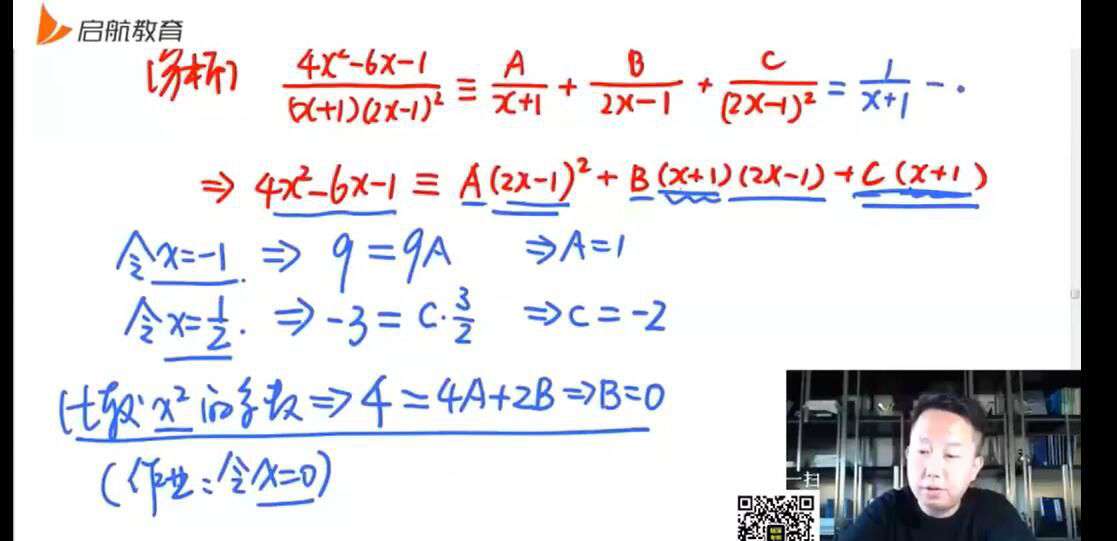 启航教育
(分析) (4x²-6x-1)/((x+1)(2x-1)²) ≡ A/(x+1) + B/(2x-1) + C/(2x-1)² = 1/(x+1) - ·
⇒ 4x²-6x-1 ≡ A(2x-1)² + B(x+1)(2x-1) + C(x+1)
令x=-1 ⇒ 9=9A ⇒A=1
令x=1/2. ⇒ -3=C·3/2 ⇒C=-2
比较x²的系数⇒4=4A+2B⇒B=0
(作业:令x=0)
一扫